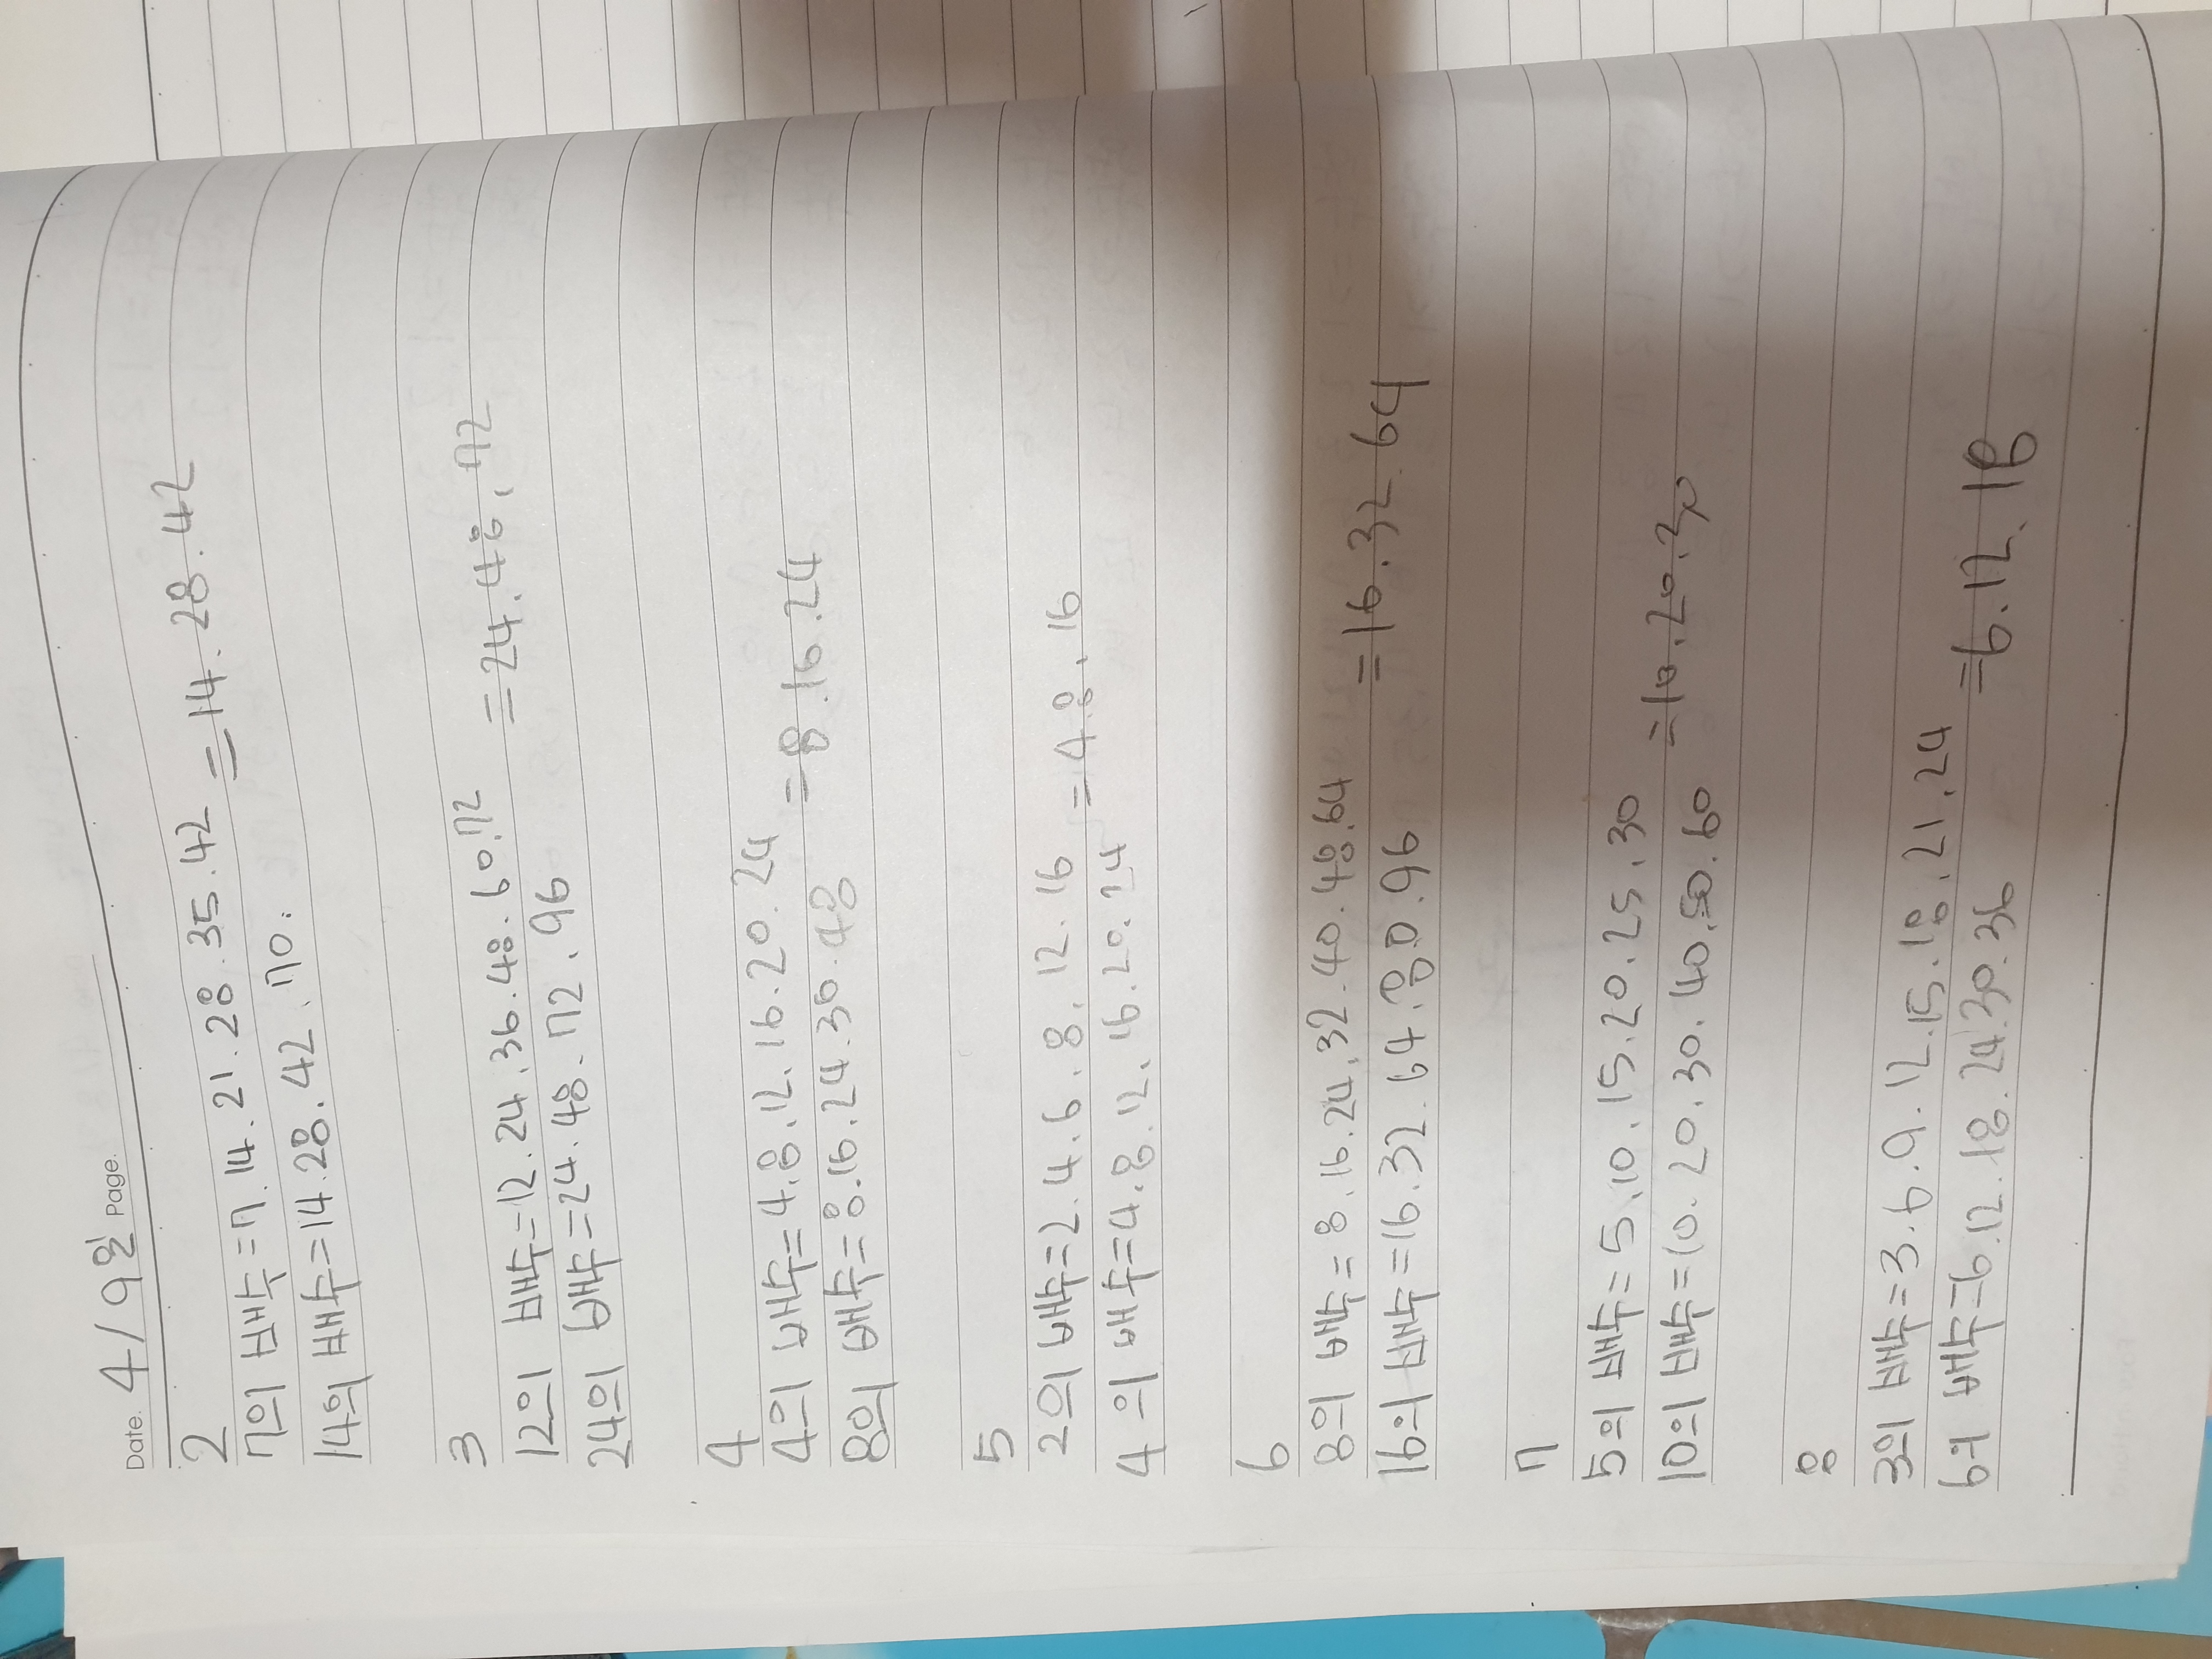 Date. 4/9일 Page.
2
7의 배수=7.14.21.28.35.42 =14.28.42
14의 배수=14.28.42.70.
3
12의 배수=12.24.36.48.60.72 =24.48.72
24의 배수=24.48.72.96
4
4의 배수=4.8.12.16.20.24 =8.16.24
8의 배수=8.16.24.36.48
5
2의 배수=2.4.6.8.12.16 =4.8.16
4의 배수=4.8.12.16.20.24
6
8의 배수=8.16.24.32.40.48.64 =16.32.64
16의 배수=16.32.64.80.96
7
5의 배수=5.10.15.20.25.30 =10.20.30
10의 배수=10.20.30.40.50.60
8
3의 배수=3.6.9.12.15.18.21.24 =6.12.18
6의 배수=6.12.18.24.30.36